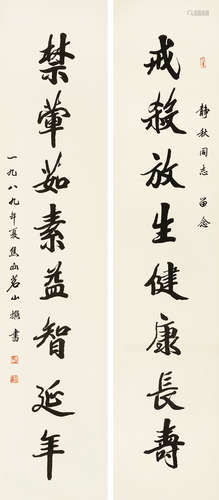 戒殺放生健康長壽
靜秋同志 留念
禁葷茹素益智延年
一九八九年夏焦山茗山撰書